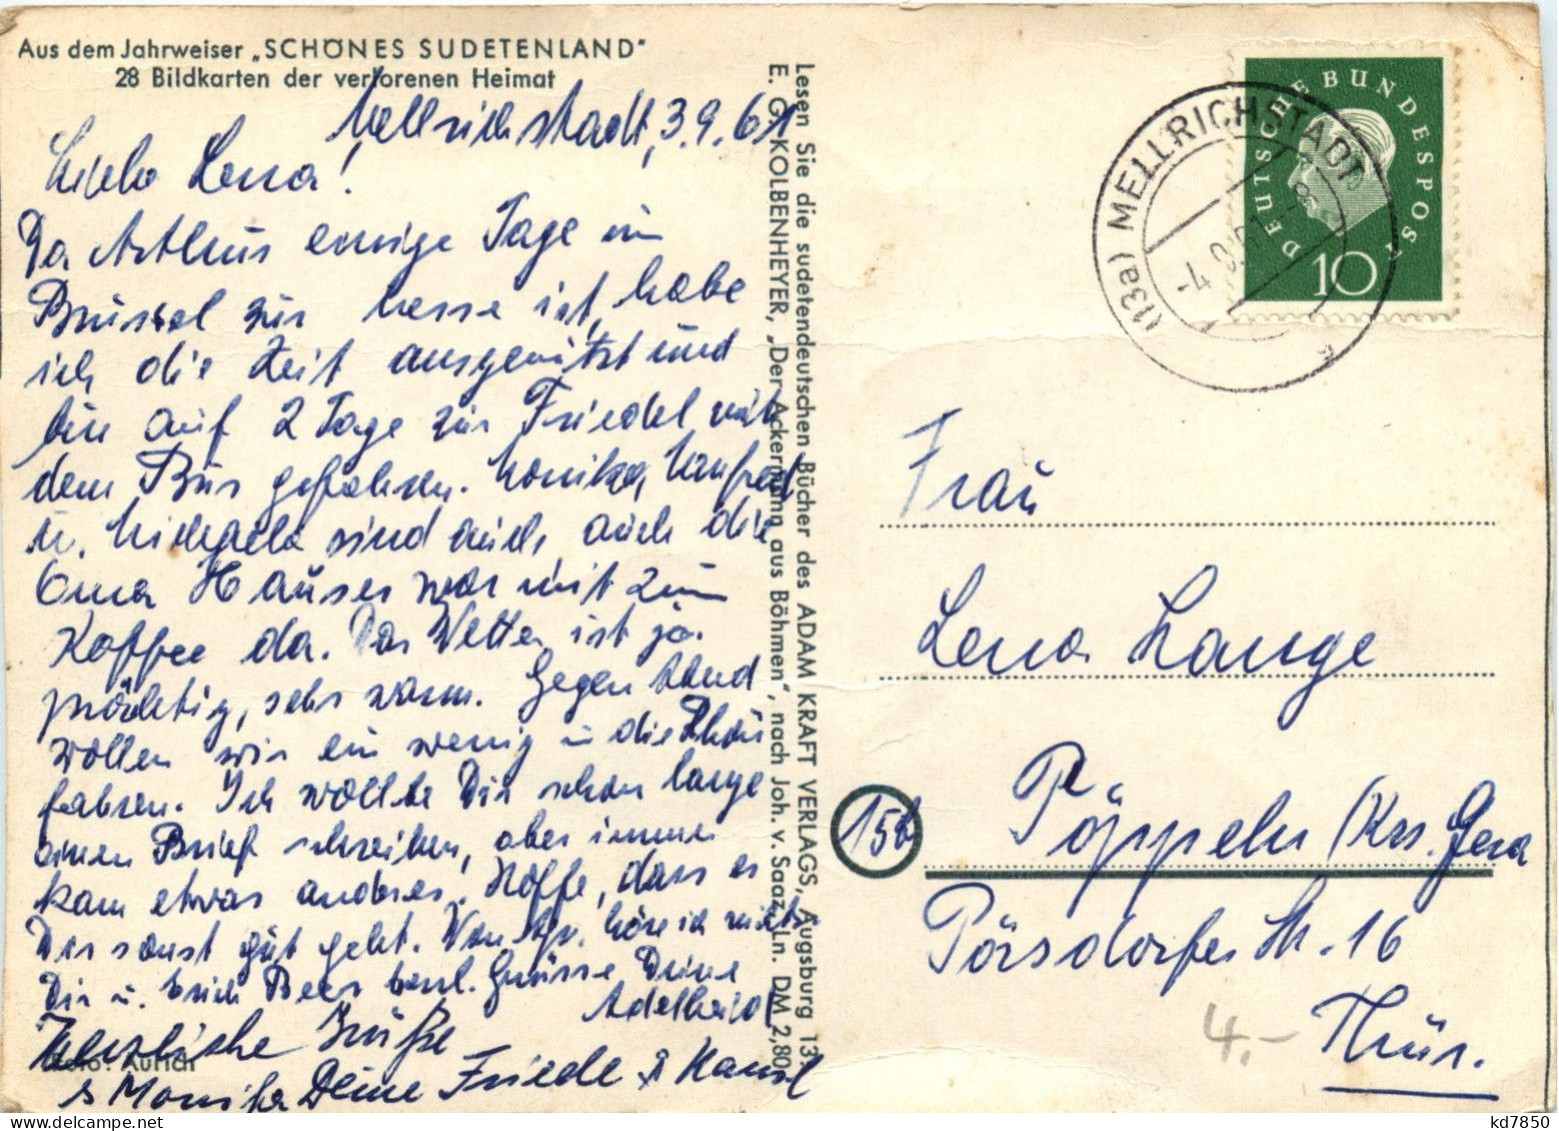 Aus dem Jahrweiser „SCHÖNES SUDETENLAND"
28 Bildkarten der verlorenen Heimat
Mellrichstadt, 3.9.61
Liebe Lena!
Da Arthur einige Tage in
Brüssel zur Messe ist, habe
ich die Zeit ausgenützt und
bin auf 2 Tage zur Friedel mit
dem Bus gefahren. Monika, Manfred
u. Michaela sind auch, auch die
Oma Hauser war mit zum
Kaffee da. Das Wetter ist ja
prächtig, sehr warm. Gegen Abend
wollen wir ein wenig in die Rhön
fahren. Ich wollte Dir schon lange
einen Brief schreiben, aber immer
kam etwas anderes. Hoffe, dass es
Dir sonst gut geht. Von höre ich nichts.
Dir u. Erich herzl. Grüsse Deine
Adelheid
Herzliche Grüße
Foto: Aurich
s Monika Deine Friede & Hansl
Lesen Sie die sudetendeutschen Bücher des ADAM KRAFT VERLAGS, Augsburg 13:
E. G. KOLBENHEYER, „Der Ackermann aus Böhmen", nach Joh. v. Saaz, Ln. DM 2,80
DEUTSCHE BUNDESPOST
10
(13a) MELLRICHSTADT
-4.9.61-
Frau
Lena Lange
15b
Pöppeln (Krs. Gera
Pörsdorfer Str. 16
Thür.
4.-
kd7850